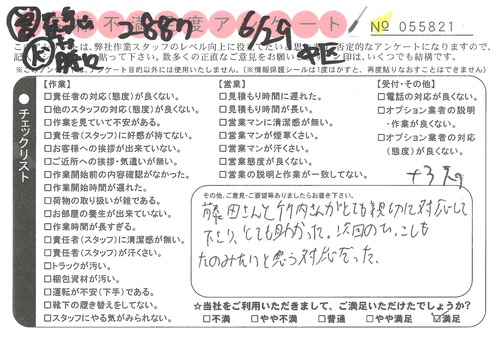 不満 度アンケート
2887 6/29
№ 055821
この アンケートは、弊社作業スタッフのレベル向上に役立て
※このアンケートは、アンケート目的以外には使用いたしません。(※情報保護シールは1度はがすと、再度貼りなおすことはできません)
チェックリスト
【作業】
□責任者の対応(態度)が良くない。
□他のスタッフの対応(態度)が良くない。
□作業を見ていて不安がある。
□責任者(スタッフ)に好感が持てない。
□お客様への挨拶が出来ていない。
□ご近所への挨拶・気遣いが無い。
□作業開始前の内容確認がなかった。
□作業開始時間が遅れた。
□荷物の取り扱いが雑である。
□お部屋の養生が出来ていない。
□作業時間が長すぎる。
□責任者(スタッフ)に清潔感が無い。
□責任者(スタッフ)が汗くさい。
□トラックが汚い。
□梱包資材が汚い。
□運転が不安(下手)である。
□靴下の履き替えをしてない。
□スタッフにやる気がみられない。
【営業】
□見積もり時間に遅れた。
□見積もり時間が長い。
□営業マンに清潔感が無い。
□営業マンが煙草くさい。
□営業マンが汗くさい。
□営業態度が良くない。
□営業の説明と作業が一致してない。
【受付・その他】
□電話の対応が良くない。
□オプション業者の説明
・作業が良くない。
□オプション業者の対応
(態度)が良くない。
その他、ご意見・ご要望等ありましたらお書き下さい。
藤田さんと竹内さんがとても親切に対応して
下さり、とても助かった。次回のひっこしも
たのみたいと思う対応だった。
☆当社をご利用いただきまして、ご満足いただけたでしょうか?
□不満 □やや不満 □普通 □やや満足 ☑満足